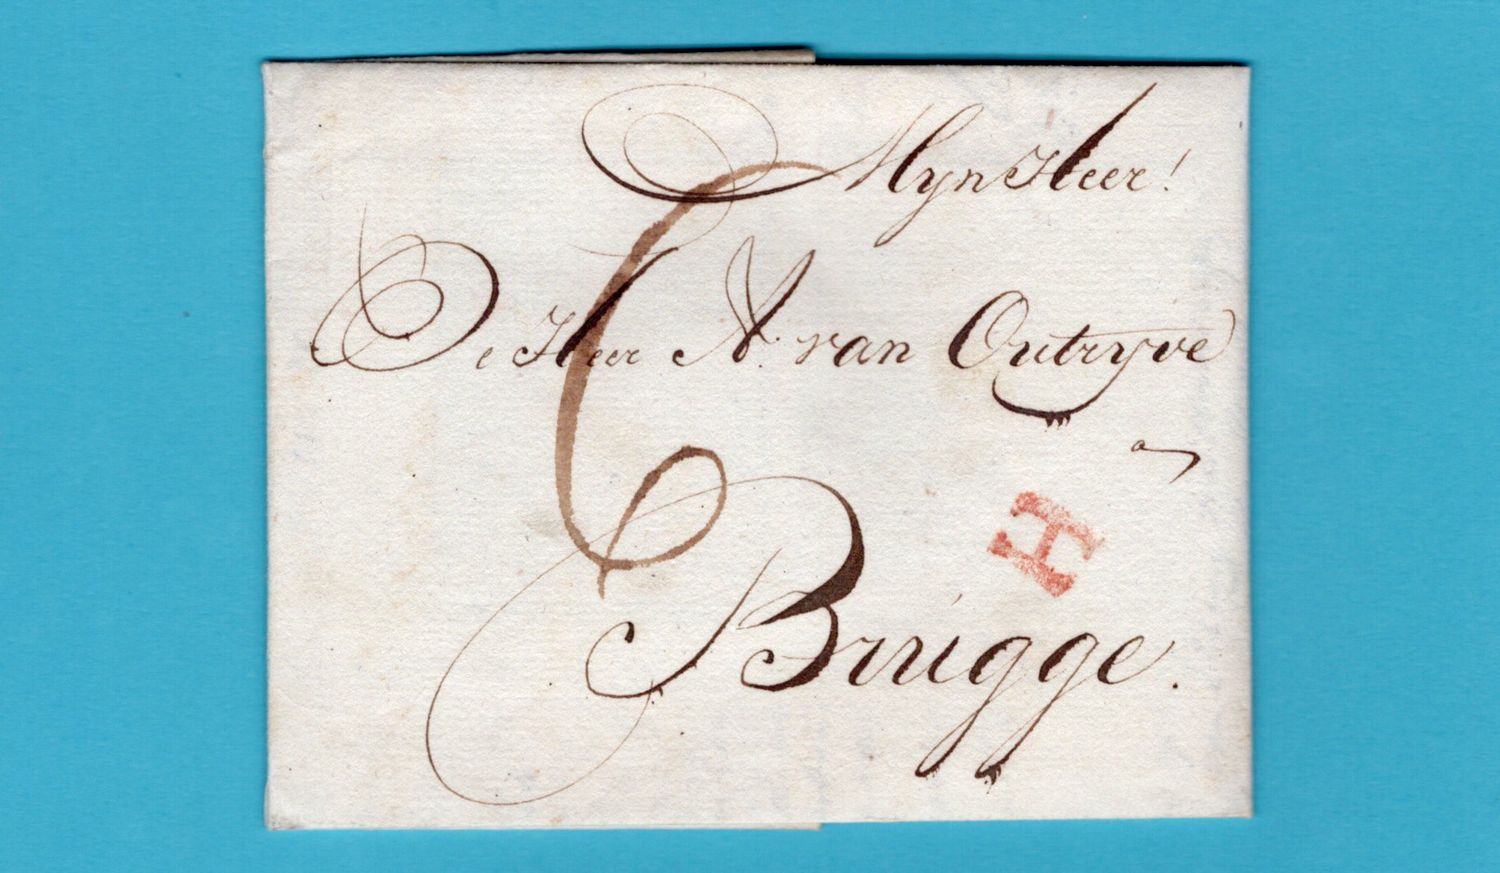 MynHeer!
De Heer A. van Outryve
H
Brugge.
6